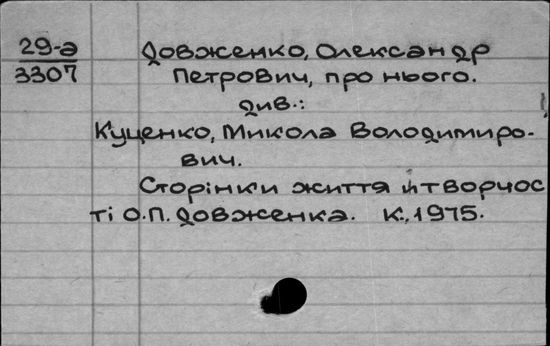 29-а
3307
Довженко, Олександр
Петрович, про нього.
див.:
Куценко, Микола Володимиро-
вич.
Сторінки життя й творчос
ті О.П. Довженка. К., 1975.